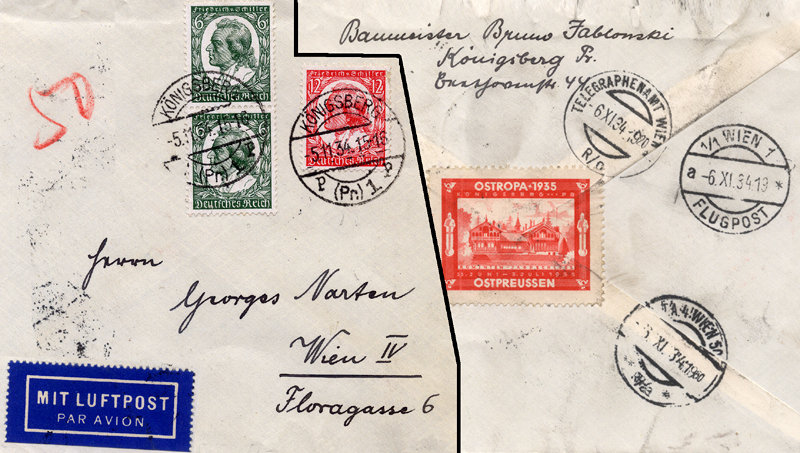 50
6 Friedrich v. Schiller 6
Deutsches Reich
6 6
Deutsches Reich
12 Friedrich v. Schiller 12
Deutsches Reich
KÖNIGSBERG
-5.11.34.15-16
(Pr) 1
KÖNIGSBERG
-5.11.34.15-16
P (Pr) 1 P
Herrn
Georges Narten
Wien IV
Floragasse 6
MIT LUFTPOST
PAR AVION
Baumeister Bruno Jablonski
Königsberg Pr.
Beethovenstr 44
TELEGRAPHENAMT WIEN
6 XI 34 1920
R/o
1/1 WIEN 1
a -6. XI. 34.19 *
FLUGPOST
OSTROPA · 1935
KÖNIGSBERG PR
OSTPREUSSEN
WIEN 50
XI. 34 1950